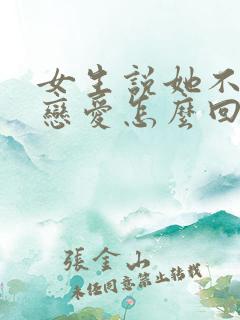 女生說她不
戀愛怎麼回
張金山
未經同意禁止轉載